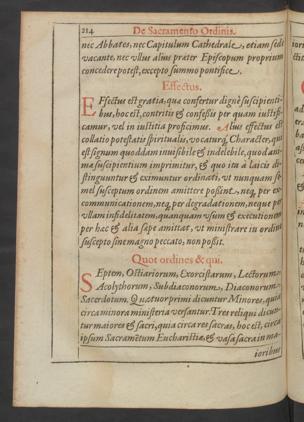 214 De Sacramento Ordinis.
nec Abbates, nec Capitulum Cathedrale, etiam sede
vacante, nec vllus alius præter Episcopum proprium
concedere potest, excepto summo pontifice.
Effectus.
EFfectus est gratia; qua confertur dignè suscipienti-
bus, hoc est, contritis & confessis per quam iustifi-
camur, vel in iustitia proficimus. Alius effectus est
collatio potestatis spiritualis, vocaturq; Character, qui
est signum quoddam inuisibile & indelebile, quod ani-
ma suscipientium imprimitur, & quo ita à laicis di-
stinguuntur & eximuntur ordinati, vt nunquam se-
mel susceptum ordinem amittere possint, neq; per ex-
communicationem, neq; per degradationem, neque per
vllam infidelitatem, quanquam vsum & executionem
per hæc & alia sæpe amittat, vt ministrare in ordine
suscepto sine magno peccato, non possit.
Quot ordines & qui.
SEptem, Ostiariorum, Exorcistarum, Lectorum,
Acolythorum, Subdiaconorum, Diaconorum,
Sacerdotum. Quatuor primi dicuntur Minores, quia
circa minora ministeria versantur. Tres reliqui dicun-
tur maiores & sacri, quia circa res sacras, hoc est, circa
ipsum Sacramētum Eucharistiæ, & vasa sacra in ma-
ioribus